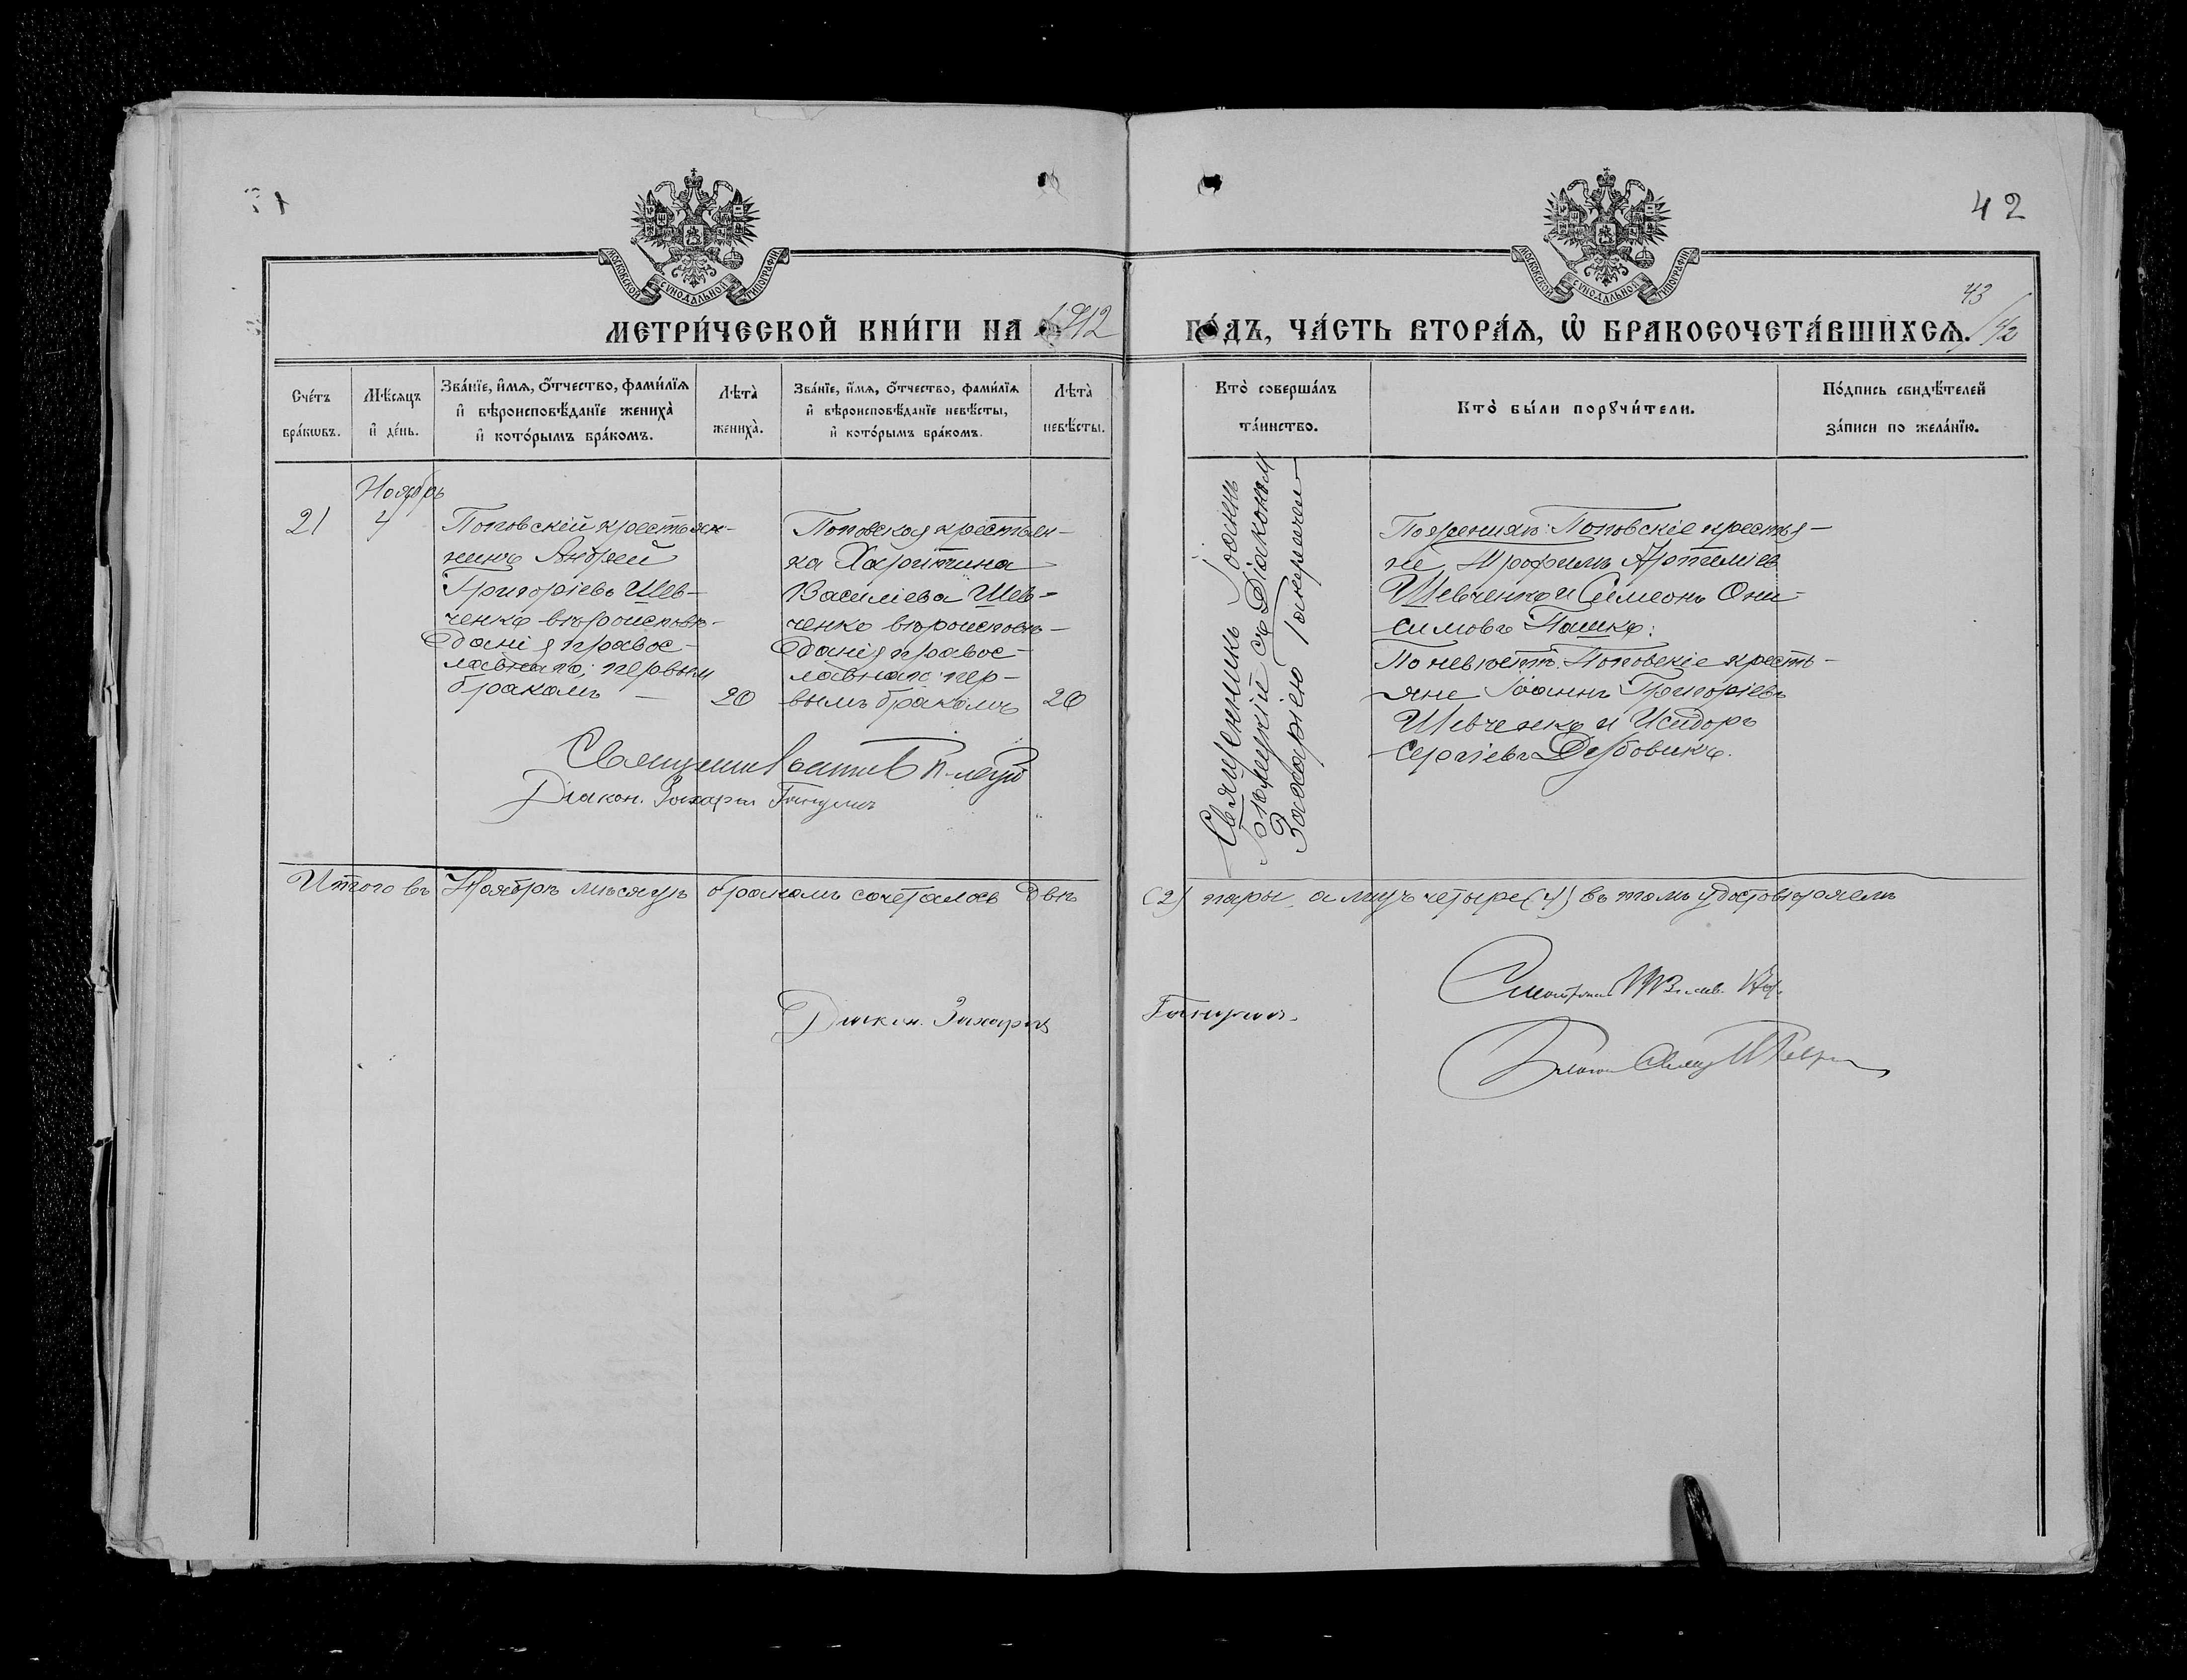 42
МОСКОВСКОЙ СУНОДАЛЬНОЙ ТИПОГРАФІИ
МОСКОВСКОЙ СУНОДАЛЬНОЙ ТИПОГРАФІИ
43/42
МЕТРИ́ЧЕСКОЙ КНИ́ГИ НА 1912 ГО́ДЪ, ЧА́СТЬ ВТОРА́Ѧ, Ѡ҆ БРАКОСОЧЕТА́ВШИХСѦ.
Сче́тъ бра́кѡвъ.
Мѣ́сяцъ и҆ де́нь.
Зва́нїе, и҆́мѧ, ѻ҆́тчество, фами́лїѧ
и҆ вѣроисповѣ́данїе жениха̀
и҆ кото́рымъ бра́комъ.
Лѣта̀ жениха̀.
Зва́нїе, и҆́мѧ, ѻ҆́тчество, фами́лїѧ
и҆ вѣроисповѣ́данїе невѣ́сты,
и҆ кото́рымъ бра́комъ.
Лѣта̀ невѣ́сты.
Кто̀ соверша́лъ
та́инство.
Кто̀ бы́ли порꙋчи́тели.
По́дпись свидѣ́телей
за́писи по жела́нїю.
Ноябрь
21
4
Поповскій крестьян-
нинъ Андрей
Григоріевъ Шев-
ченко вѣроисповѣ-
данія правос-
лавнаго; первым
бракомъ —
20
Поповская крестьян-
ка Харитина
Василіева Шев-
ченко вѣроисповѣ-
данія правос-
лавнаго пер-
вымъ бракомъ
20
Священникъ Іоаннъ
съ Діакономъ
Захаріею
По женихѣ: Поповскіе крестья-
не Трофимъ Артеміев
Шевченко и Симеонъ Они-
симовъ Пашко:
По невѣстѣ: Поповскіе кресть-
яне Іоаннъ Григоріевъ
Шевченко и Исидоръ
Сергіевъ Дубовикъ.
Діакон. Захарія
Итого въ Ноябрѣ мѣсяцѣ бракомъ сочеталось двѣ (2) пары, а лицъ четыре (4) въ томъ удостовѣряемъ
Діакон. Захарія